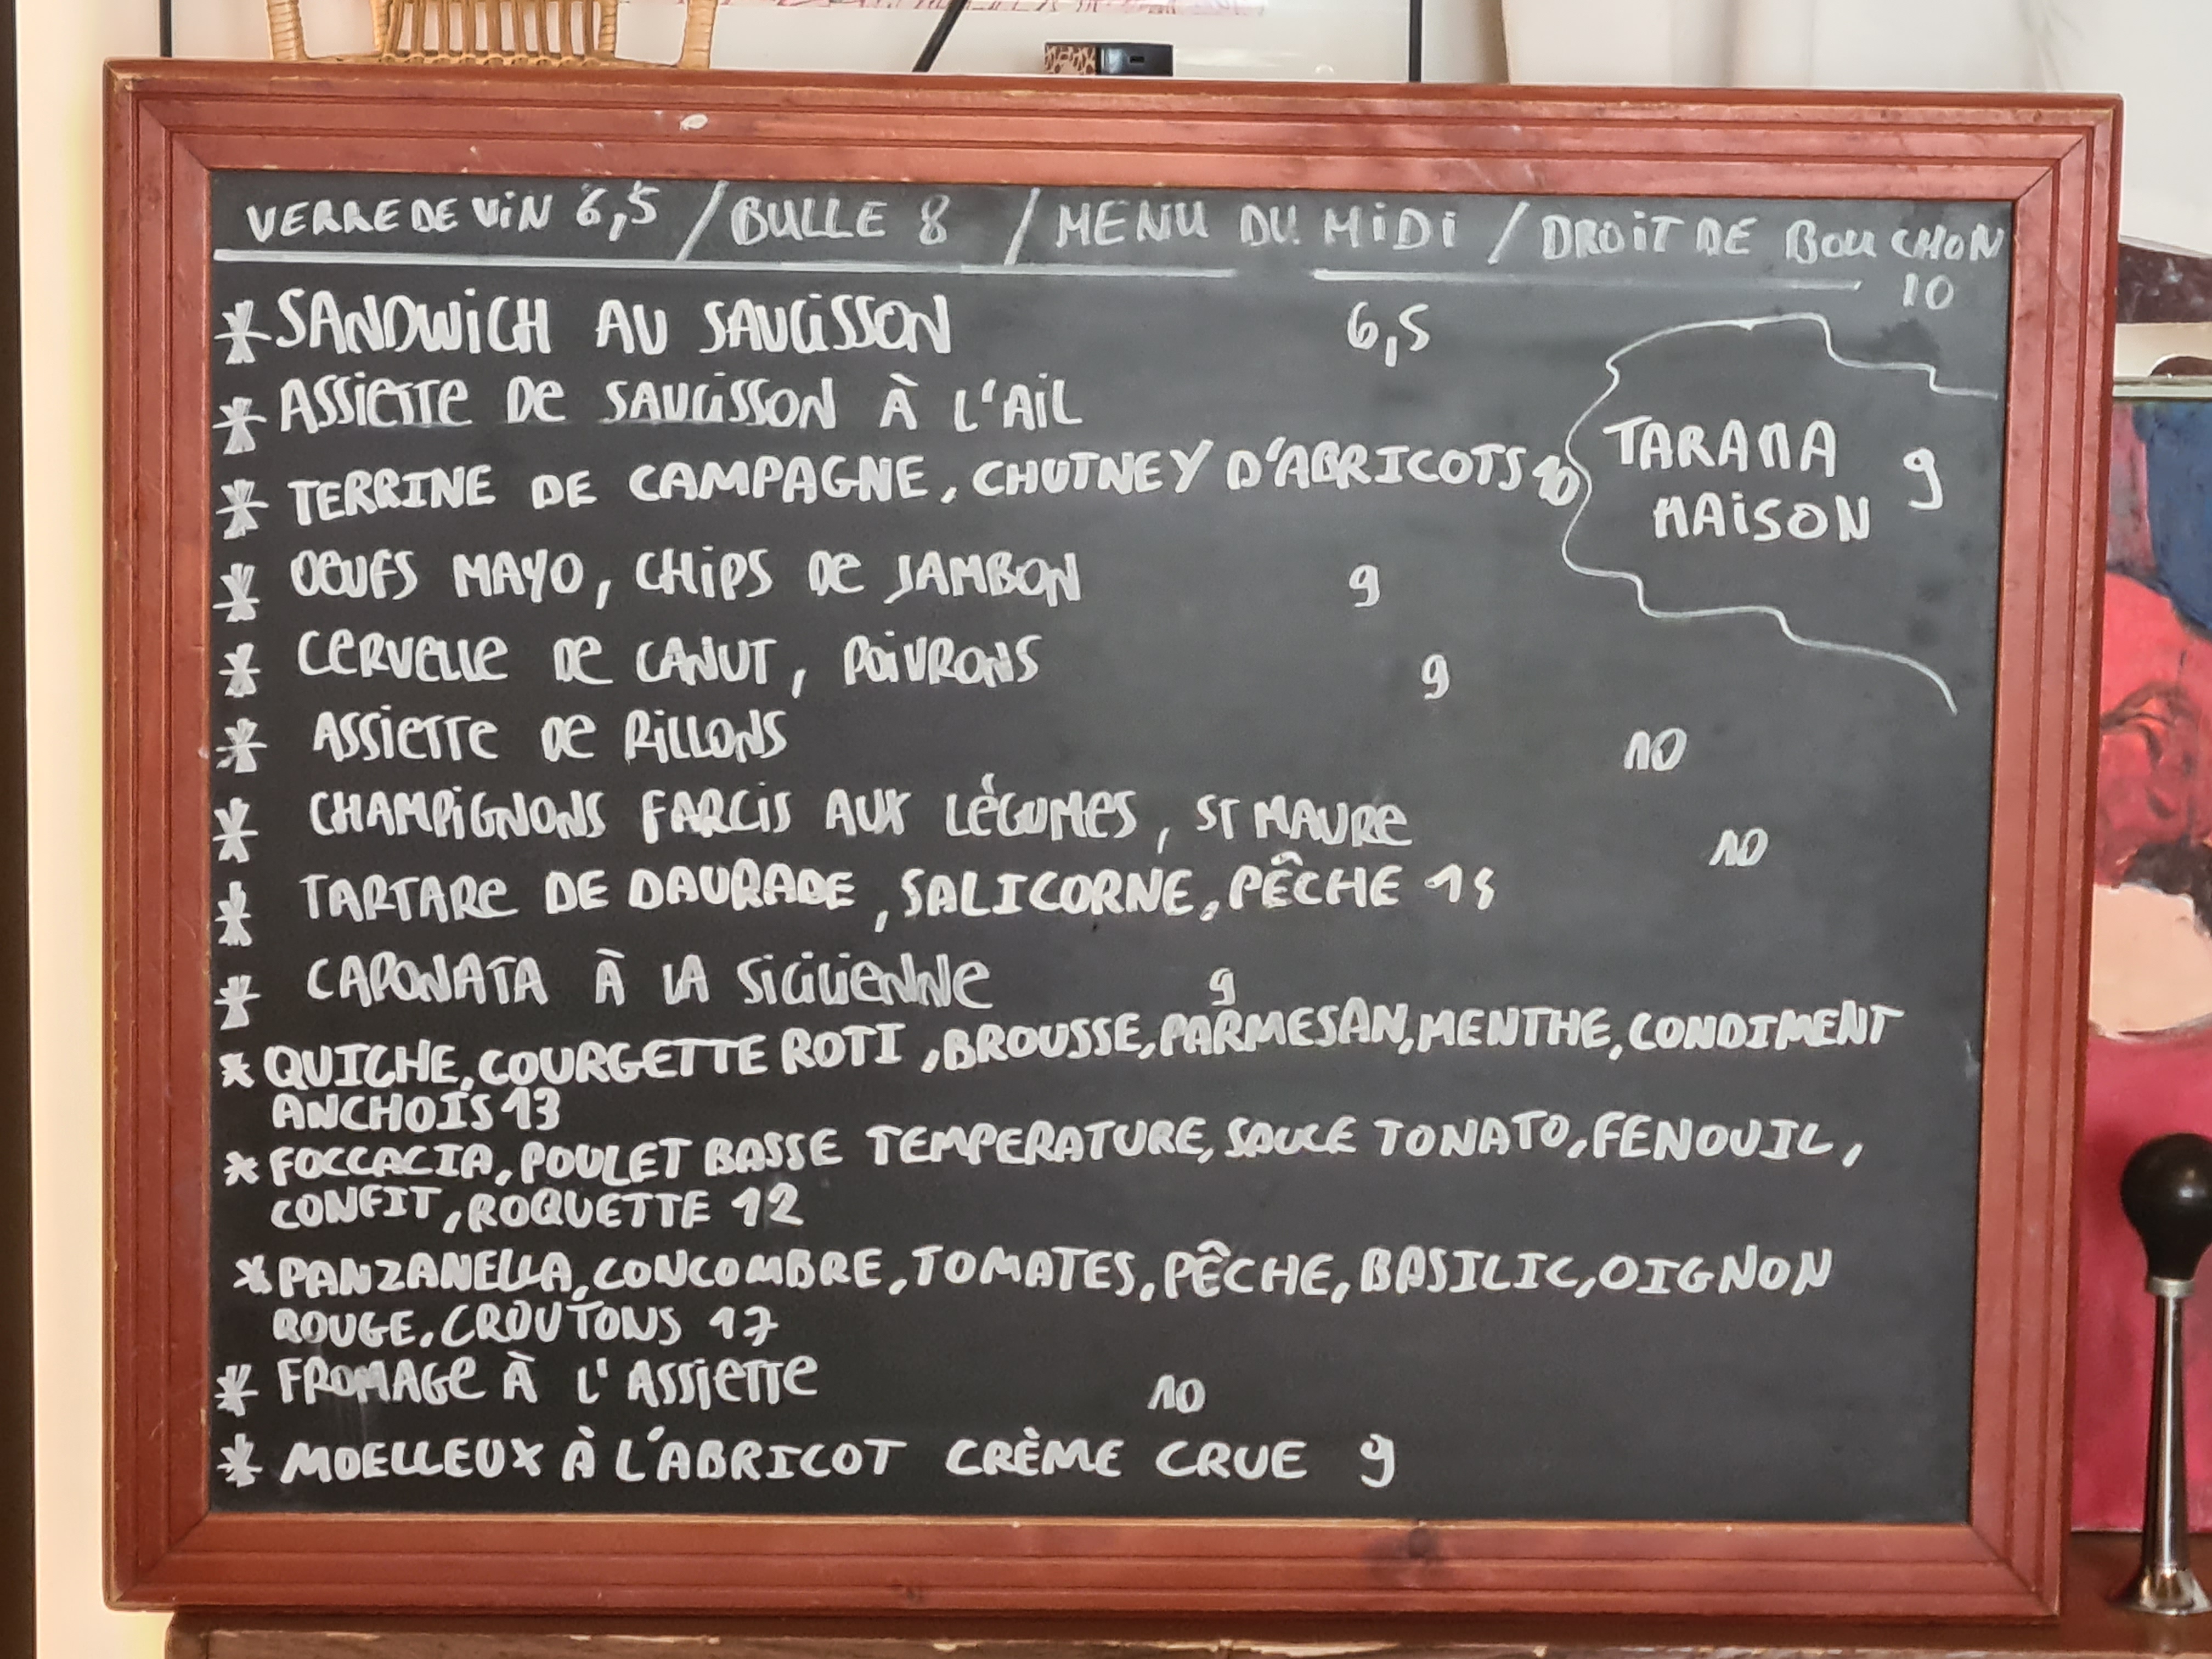 VERRE DE VIN 6,5 / BULLE 8 / MENU DU MIDI / DROIT DE BOUCHON
10
* SANDWICH AU SAUCISSON 6,5
* ASSIETTE DE SAUCISSON À L'AIL
* TERRINE DE CAMPAGNE, CHUTNEY D'ABRICOTS 10
TARAMA 9
MAISON
* OEUFS MAYO, CHIPS DE JAMBON 9
* CERVELLE DE CANUT, POIVRONS 9
* ASSIETTE DE RILLONS 10
* CHAMPIGNONS FARCIS AUX LÉGUMES, ST MAURE 10
* TARTARE DE DAURADE, SALICORNE, PÊCHE
* CAPONATA À LA SICILIENNE 9
* QUICHE, COURGETTE ROTI, BROUSSE, PARMESAN, MENTHE, CONDIMENT
ANCHOIS 13
* FOCCACIA, POULET BASSE TEMPERATURE, SAUCE TONATO, FENOUIL,
CONFIT, ROQUETTE 12
* PANZANELLA, CONCOMBRE, TOMATES, PÊCHE, BASILIC, OIGNON
ROUGE, CROUTONS 17
* FROMAGE À L'ASSIETTE 10
* MOELLEUX À L'ABRICOT CRÈME CRUE 9